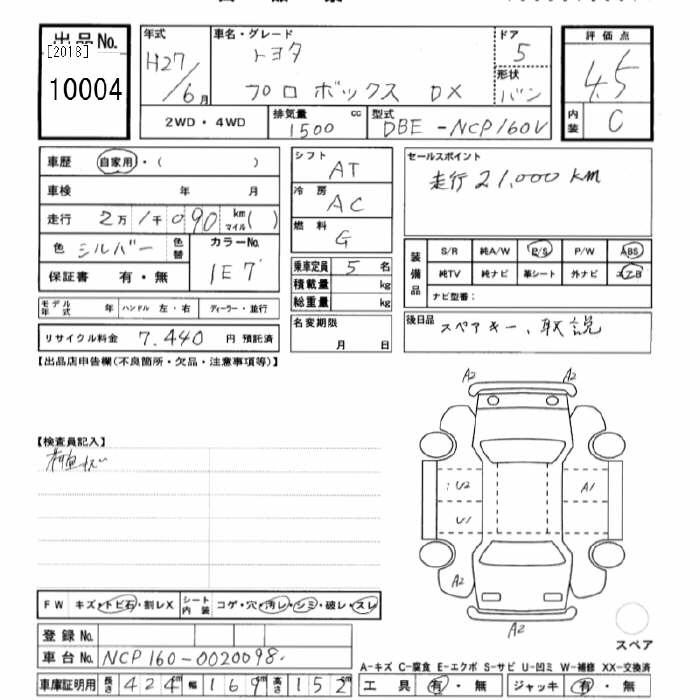 出品No.
[2018]
10004
年式
H27/6月
車名・グレード
トヨタ
プロボックス DX
ドア
5
形状
バン
評価点
4.5
内装
C
2WD・4WD
排気量
1500 cc
型式
DBE-NCP160V
車歴 自家用・( )
車検 年 月
走行 2万1千090 km マイル( )
色 シルバー 色替
カラーNo.
1E7
保証書 有・無
モデル年式 年 ハンドル 左・右 ディーラー・並行
リサイクル料金 7,440 円 預託済
シフト
AT
冷房
AC
燃料
G
乗車定員 5 名
積載量 kg
総重量 kg
名変期限
月 日
セールスポイント
走行21,000km
装備品
S/R 純A/W P/S P/W ABS
純TV 純ナビ 革シート 外ナビ エアB
ナビ型番:
後日品 スペアキー、取説
【出品店申告欄(不良箇所・欠品・注意事項等)】
【検査員記入】
A2 A2
U2 A1
U1
A2
A2
スペア
FW キズ・トビ石・割レX シート内装 コゲ・穴・汚レ・シミ・破レ・スレ
登録No.
車台No. NCP160-0020098.
A-キズ C-腐食 E-エクボ S-サビ U-凹ミ W-補修 XX-交換済
車庫証明用 長さ 424cm 幅 169cm 高さ 152cm
工具 有・無 ジャッキ 有・無